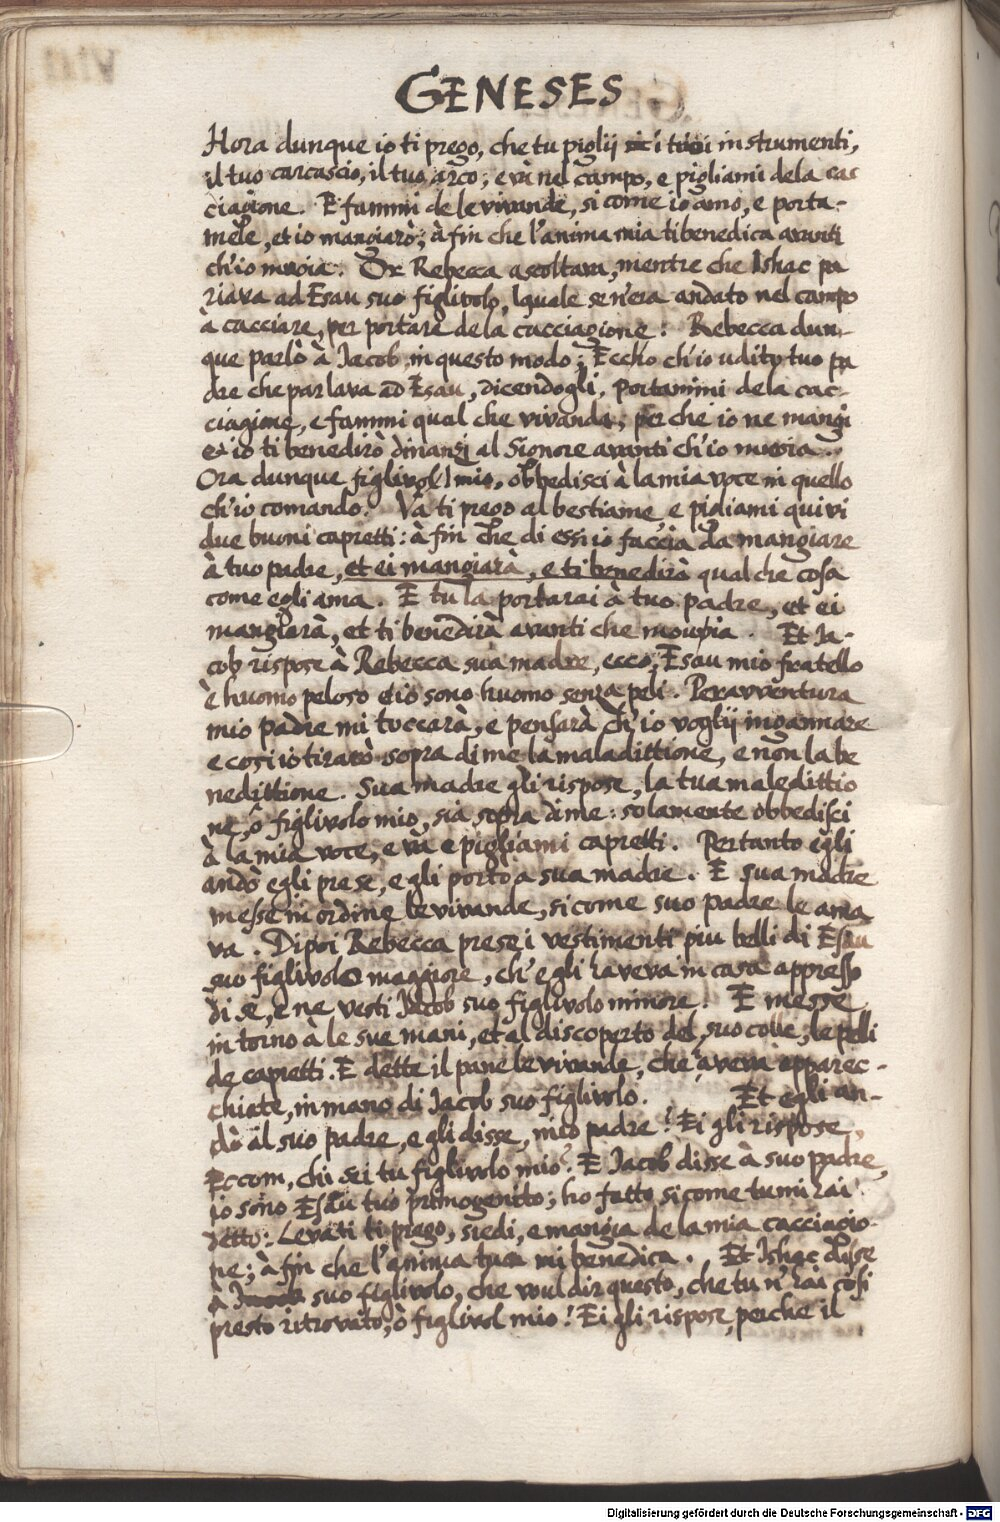 GENESES
Hora dunque io ti prego, che tu piglij i tuoi instrumenti,
il tuo carcascio, il tuo arco; e và nel campo, e pigliami dela cac
ciagione. E fammi de le vivande, si come io amo, e porta-
mele, et io mangiarò; à fin che l'anima mia ti benedica avanti
ch'io muoia. Or Rebecca ascoltava, mentre che Ishac pa
rlava ad Esau suo figlivolo, lquale se n'era andato nel campo
à cacciare, per portare dela cacciagione: Rebecca dun-
que parlò à Jacob in questo modo; Eccho ch'io udito tuo pa
dre che parlava ad Esau, dicendogli, Portammi dela cac-
ciagione, e fammi qual che vivanda; per che io ne mangi
et io ti benedirò dinanzi al Signore avanti ch'io muoia.
Ora dunque figlivol mio, obbedisci à la mia voce in quello
ch'io comando. Và ti prego al bestiame, e pigliami quivi
due buoni capretti: à fin che di essi io faccia da mangiare
à tuo padre, et ei mangiarà, e ti benedirà qual che cosa
come egli ama. E tu la portarai à tuo padre, et ei
mangiarà, et ti benedirà avanti che muoia. Et Ja-
cob rispose à Rebecca sua madre, ecco, Esau mio fratello
è huomo peloso et io sono huomo senza peli. Peravventura
mio padre mi toccarà, e pensarà ch'io voglij ingannare
e cosi io tirarò sopra di me la maladittione, e non la be
nedittione. Sua madre gli rispose, la tua maledittio
ne, ô figlivolo mio, sia sopra di me: solamente obbedisci
à la mia voce, e và e pigliami capretti. Pertanto egli
andò egli prese, e gli porto a sua madre. E sua madre
messe in ordine le vivande, si come suo padre le ama
va. Dipoi Rebecca prese i vestimenti piu belli di Esau
suo figlivolo maggiore, ch'egli haveva in casa appresso
di se, e ne vesti Jacob suo figlivolo minore. E messe
in torno à le sue mani, et al discoperto del suo collo, le pelli
de capretti. E dette il pane le vivande, che aveva apparec-
chiate, in mano di Jacob suo figlivolo. Et egli an-
dò al suo padre, e gli disse, mio padre! Ei gli rispose,
Eccom, chi sei tu figlivolo mio? E Jacob disse à suo padre,
io sono Esau tuo primogenito; ho fatto si come tu mi hai
detto: Levati ti prego, siedi, e mangia de la mia cacciagio-
ne; à fin che l'anima tua mi benedica. Et Ishac disse
à suo figlivolo, che vuol dir questo, che tu n'hai cosi
presto ritrovato, ò figlivol mio! Ei gli rispose, perche il
Digitalisierung gefördert durch die Deutsche Forschungsgemeinschaft - DFG